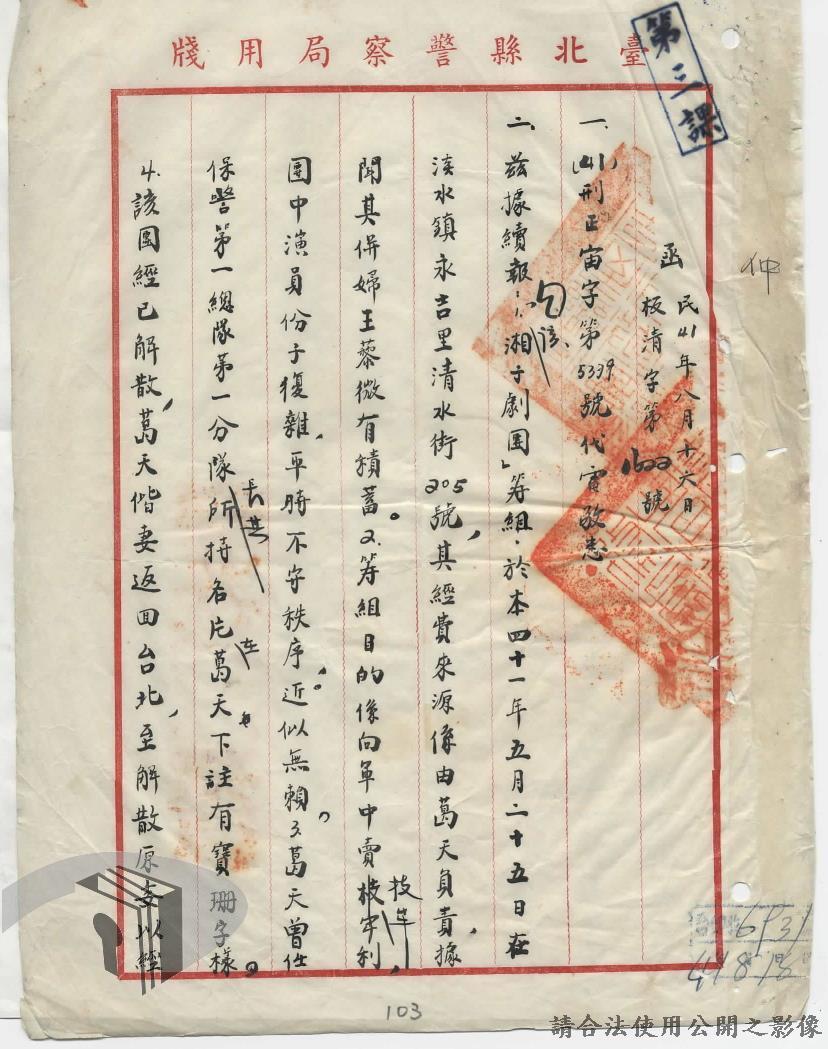 臺北縣警察局用牋
第三課
函
民41年八月十六日
板清字第1622號
一、(41)刑正宙字第5339號代電敬悉。
二、茲據續報:1、「湘子劇團」籌組,於本四十一年五月二十五日在
淡水鎮永吉里清水街205號,其經費來源係由葛天負責,據
聞其併婦王藜微有積蓄。2、籌組目的係向軍中賣技牟利,
團中演員份子復雜,平時不守秩序,近似無賴。3、葛天曾任
保警第一總隊第一分隊長其所持名片葛天下註有寶珊字樣。
4、該團經已解散,葛天偕妻返回台北,至解散原委以經
仲
103
請合法使用公開之影像